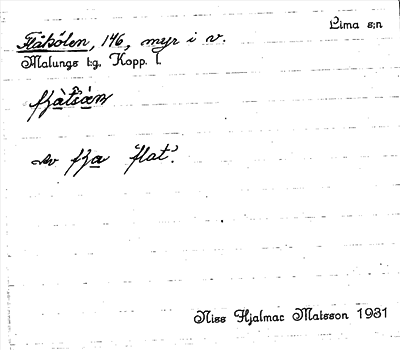 Lima s:n
Flåkölen, 146, myr i v.
Malungs t:g. Kopp. l.
av fla 'flat'.
Niss Hjalmar Matsson 1931